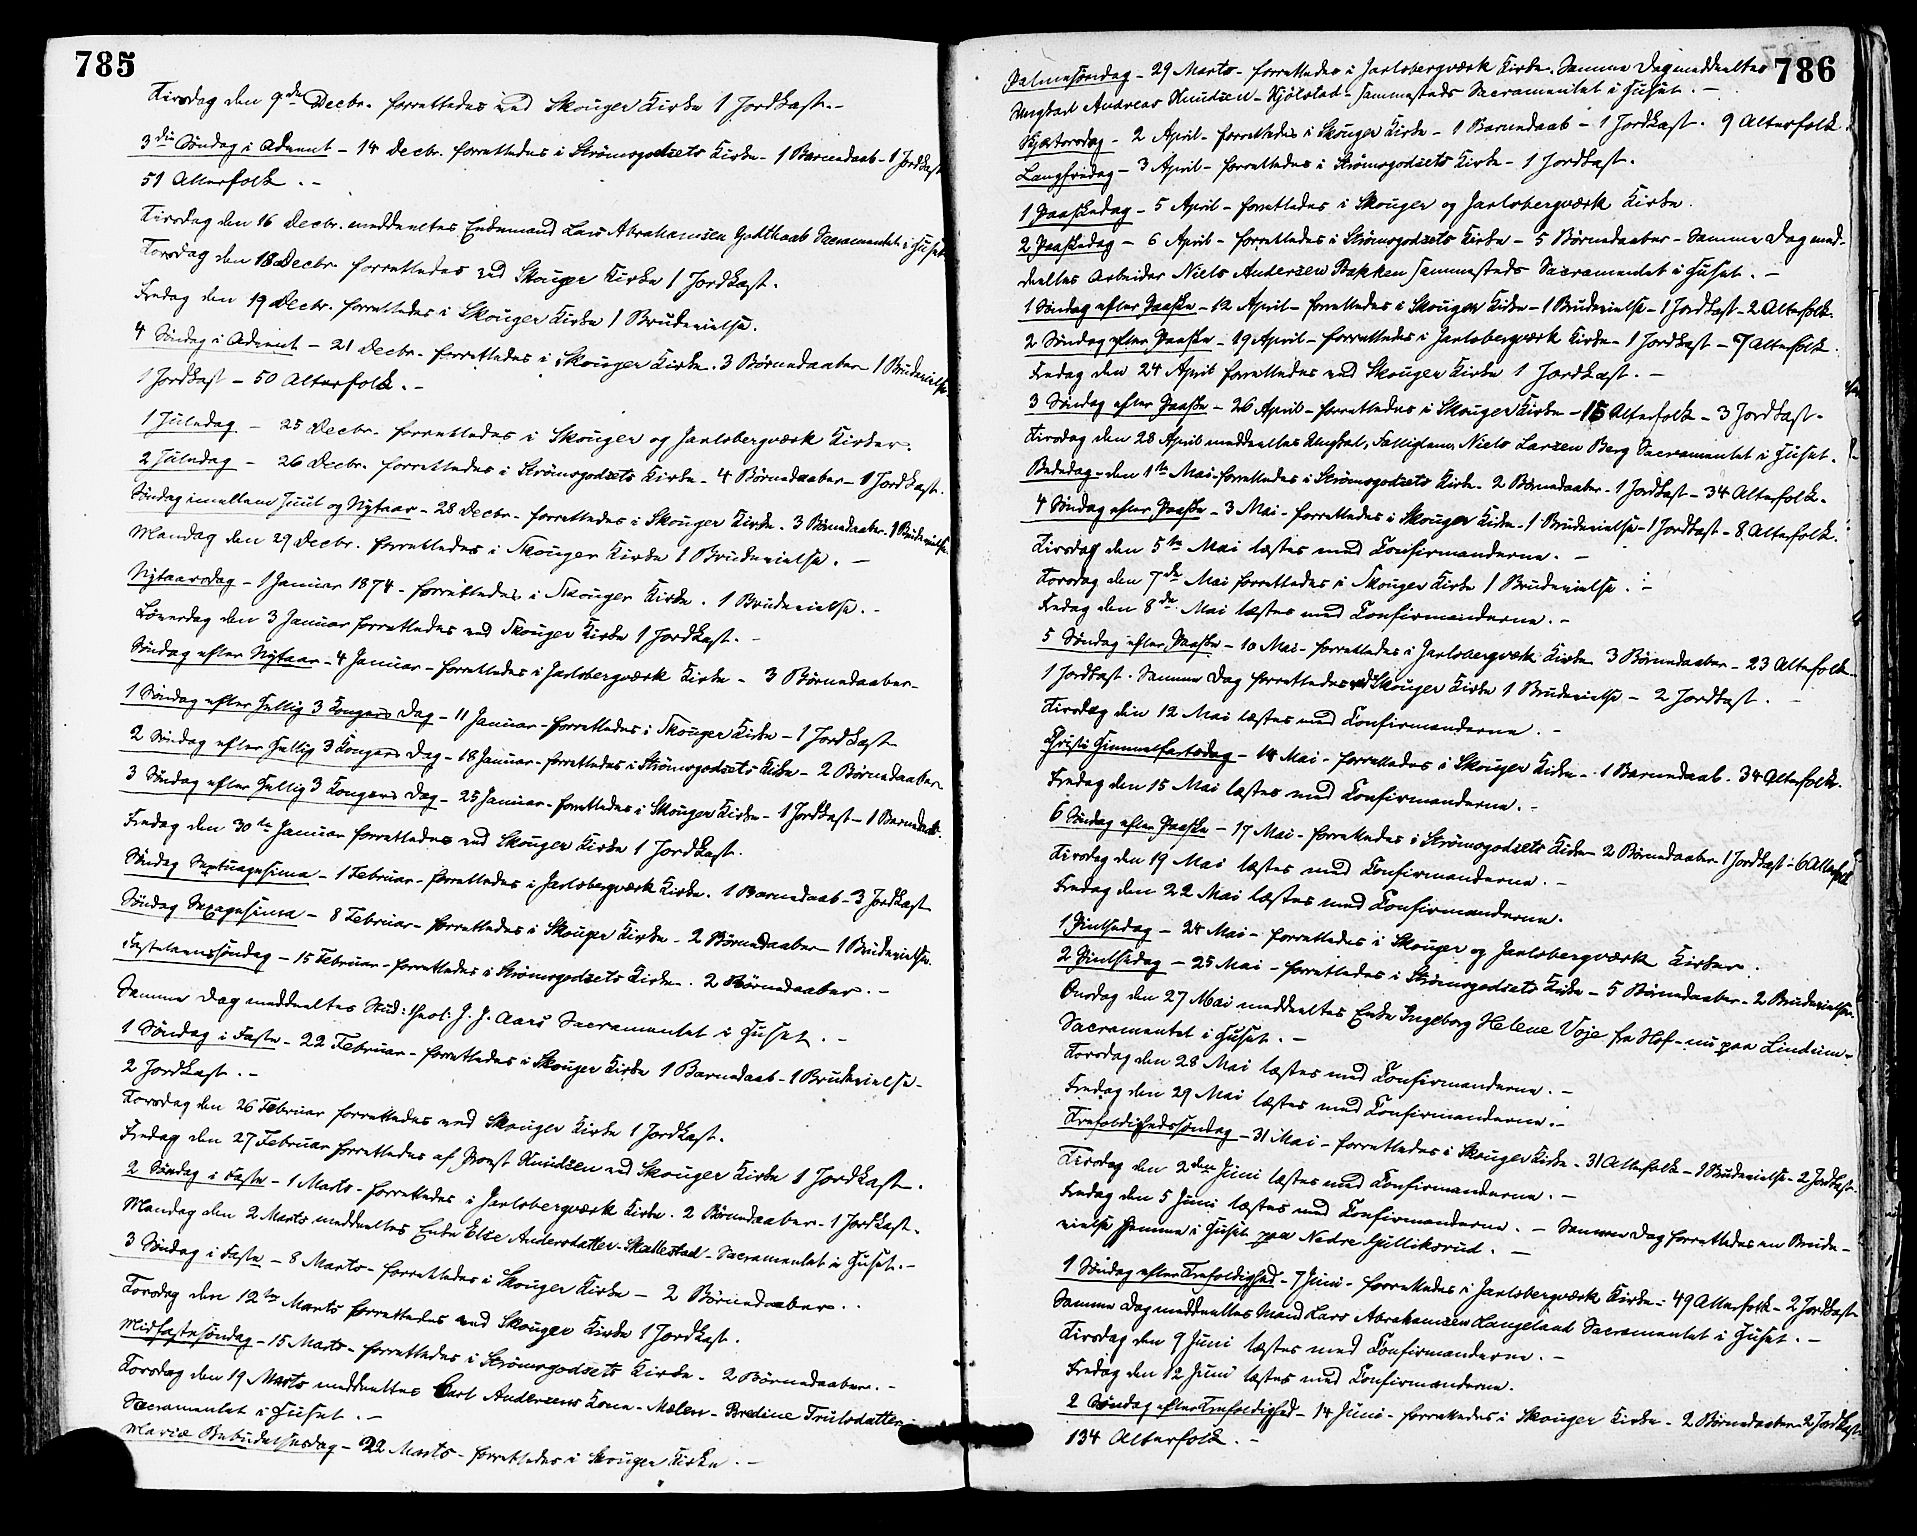 785
Tirsdag den 9de Decbr. forrettedes ved Skouger Kirke 1 Jordkast.-
3die Søndag i Advent - 14 Decbr. forrettedes i Strömsgodsets Kirke - 1 Barnedaab - 1 Jordkast
51 Alterfolk.-
Tirsdag den 16 Decbr. meddeeltes Enkemand Lars Abrahamsen Godthaab Sacramentet i Huset.
Torsdag den 18 Decbr. forrettedes ved Skouger Kirke 1 Jordkast.
Fredag den 19 Decbr. forrettedes i Skouger Kirke 1 Brudevielse.
4 Søndag i Advent - 21 Decbr. forrettedes i Skouger Kirke. 3 Børnedaaber 1 Brudevielse
1 Jordkast - 50 Alterfolk.-
1 Juledag - 25 Decbr. forrettedes i Skouger og Jarlsbergværk Kirker.
2 Juledag - 26 Decbr. forrettedes i Strömsgodsets Kirke - 4 Børnedaaber - 1 Jordkast.
Søndag imellem Juul og Nytaar - 28 Decbr. forrettedes i Skouger Kirke. 3 Børnedaaber. 1 Brudevielse.
Mandag den 29 Decbr. forrettedes i Skouger Kirke 1 Brudevielse.-
Nytaarsdag - 1 Januar 1874 - forrettedes i Skouger Kirke. 1 Brudevielse.-
Løverdag den 3 Januar forrettedes ved Skouger Kirke 1 Jordkast.-
Søndag efter Nytaar - 4 Januar - forrettedes i Jarlsbergværk Kirke - 3 Børnedaaber-
1 Søndag efter Hellig 3 Kongers Dag - 11 Januar - forrettedes i Skouger Kirke - 1 Jordkast
2 Søndag efter Hellig 3 Kongers Dag - 18 Januar - forrettedes i Strömsgodsets Kirke - 2 Børnedaaber
3 Søndag efter Hellig 3 Kongers Dag - 25 Januar - forrettedes i Skouger Kirke - 1 Jordkast - 1 Barnedaab.
Fredag den 30te Januar forrettedes ved Skouger Kirke 1 Jordkast.
Søndag Septuagesima - 1 Februar - forrettedes i Jarlsbergværk Kirke. 1 Barnedaab - 3 Jordkast
Søndag Sexagesima - 8 Februar - forrettedes i Skouger Kirke - 2 Børnedaaber - 1 Brudevielse.
Fastelavnssøndag - 15 Februar - forrettedes i Strömsgodsets Kirke. 2 Børnedaaber.-
Samme Dag meddeeltes Stud: theol: J. J. Aars Sacramentet i Huset.-
1 Søndag i Faste - 22 Februar - forrettedes i Skouger Kirke 1 Barnedaab - 1 Brudevielse -
2 Jordkast.-
Torsdag den 26 Februar forrettedes ved Skouger Kirke 1 Jordkast.
Fredag den 27 Februar forrettedes af Provst Knudsen ved Skouger Kirke 1 Jordkast.
2 Søndag i Faste - 1 Marts - forrettedes i Jarlsbergværk Kirke. 2 Børnedaaber - 1 Jordkast.
Mandag den 2 Marts meddeeltes Enke Else Andersdatter - Skallestad - Sacramentet i Huset.-
3 Søndag i Faste - 8 Marts - forrettedes i Skouger Kirke - 2 Børnedaaber..
Torsdag den 12te Marts forrettedes ved Skouger Kirke 1 Jordkast.
Midfastesøndag - 15 Marts - forrettedes i Strömsgodsets Kirke. 2 Børnedaaber.-
Torsdag den 19 Marts meddeeltes Carl Andersens Kone - Mælen - Bredine Trulsdatter
Sacramentet i Huset.-
Mariæ Bebudelsesdag - 22 Marts - forrettedes i Skouger Kirke.-
786
Palmesøndag - 29 Marts - forrettedes i Jarlsbergværk Kirke. Samme Dag meddeeltes
Ungkarl Andreas Knudsen - Kjölstad - sammesteds Sacramentet i Huset.-
Skjærtorsdag - 2 April - forrettedes i Skouger Kirke - 1 Barnedaab - 1 Jordkast. 9 Alterfolk.
Langfredag - 3 April - forrettedes i Strömsgodsets Kirke - 1 Jordkast.
1 Paaskedag - 5 April - forrettedes i Skouger og Jarlsbergværk Kirke.
2 Paaskedag - 6 April - forrettedes i Strömsgodsets Kirke - 5 Børnedaaber - Samme Dag med-
deeltes Arbeider Niels Andersen Bakken sammesteds Sacramentet i Huset.-
1 Søndag efter Paaske - 12 April - forrettedes i Skouger Kirke - 1 Brudevielse - 1 Jordkast - 2 Alterfolk.
2 Søndag efter Paaske - 19 April - forrettedes i Jarlsbergværk Kirke - 1 Jordkast - 7 Alterfolk.
Fredag den 24 April forrettedes ved Skouger Kirke 1 Jordkast.-
3 Søndag efter Paaske - 26 April - forrettedes i Skouger Kirke - 15 Alterfolk - 3 Jordkast-
Tirsdag den 28 April meddeeltes Ungkal, Fattiglem, Niels Larsen Berg Sacramentet i Huset.
Bededag - den 1te Mai - forrettedes i Strömsgodsets Kirke - 2 Børnedaaber - 1 Jordkast - 34 Alterfolk.
4 Søndag efter Paaske - 3 Mai - forrettedes i Skouger Kirke - 1 Brudevielse - 1 Jordkast - 8 Alterfolk.
Tirsdag den 5te Mai læstes med Confirmanderne.-
Torsdag den 7de Mai forrettedes i Skouger Kirke 1 Brudevielse.-
Fredag den 8de Mai læstes med Confirmanderne.-
5 Søndag efter Paaske - 10 Mai - forrettedes i Jarlsbergværk Kirke 3 Børnedaaber - 23 Alterfolk -
1 Jordkast. Samme Dag forrettedes ved Skouger Kirke 1 Brudevielse - 2 Jordkast.-
Tirsdag den 12 Mai læstes med Confirmanderne.-
Christi Himmelfartsdag - 14 Mai - forrettedes i Skouger Kirke - 1 Barnedaab. 34 Alterfolk.
Fredag den 15 Mai læstes med Confirmanderne.-
6 Søndag efter Paaske - 17 Mai - forrettedes i Strömsgodsets Kirke 2 Børnedaaber - 1 Jordkast - 6 Alterfolk
Tirsdag den 19 Mai læstes med Confirmanderne.-
Fredag den 22 Mai læstes med Confirmanderne.
1 Pintsedag - 24 Mai - forrettedes i Skouger og Jarlsbergværk Kirker.
2 Pintsedag - 25 Mai - forrettedes i Strömsgodsets Kirke - 5 Børnedaaber - 2 Brudevielser.
Onsdag den 27 Mai meddeeltes Enke Ingeborg Helene Voje fra Hof - nu paa Lindum -
Sacramentet i Huset.-
Torsdag den 28 Mai læstes med Confirmanderne.-
Fredag den 29 Mai læstes med Confirmanderne.-
Trefoldighedssøndag - 31 Mai - forrettedes i Skouger Kirke - 31 Alterfolk - 1 Brudevielse - 2 Jordkast
Tirsdag den 2den Juni læstes med Confirmanderne.-
Fredag den 5 Juni læstes med Confirmanderne.- Samme Dag forrettedes en Brude-
vielse hjemme i Huset paa Nedre Gulliksrud.-
1 Søndag efter Trefoldighed - 7 Juni - forrettedes i Jarlsbergværk Kirke - 49 Alterfolk - 2 Jordkast
Samme Dag meddeeltes Mand Lars Abrahamsen Langeland Sacramentet i Huset.-
Tirsdag den 9 Juni læstes med Confirmanderne.-
Fredag den 12 Juni læstes med Confirmanderne.
2 Søndag efter Trefoldighed - 14 Juni - forrettedes i Skouger Kirke - 2 Børnedaaber - 2 Jordkast
134 Alterfolk.-